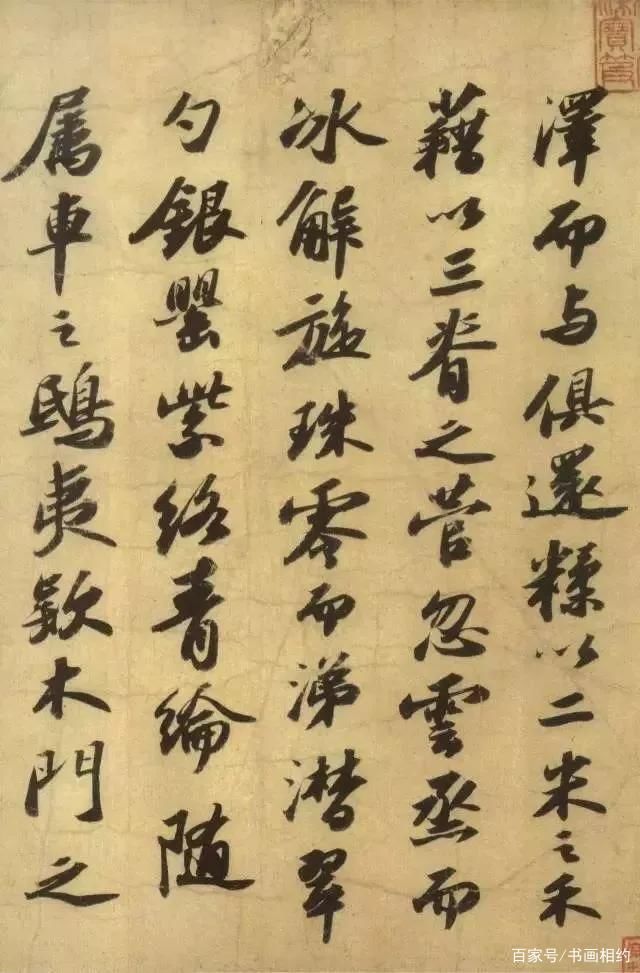 澤而与俱還糅以二米之禾
藉以三脊之菅忽雲烝而
冰解旋珠零而涕潸翠
勺銀罌紫絡青綸随
属車之鴟夷欵木門之
寶笈
百家号/书画相约